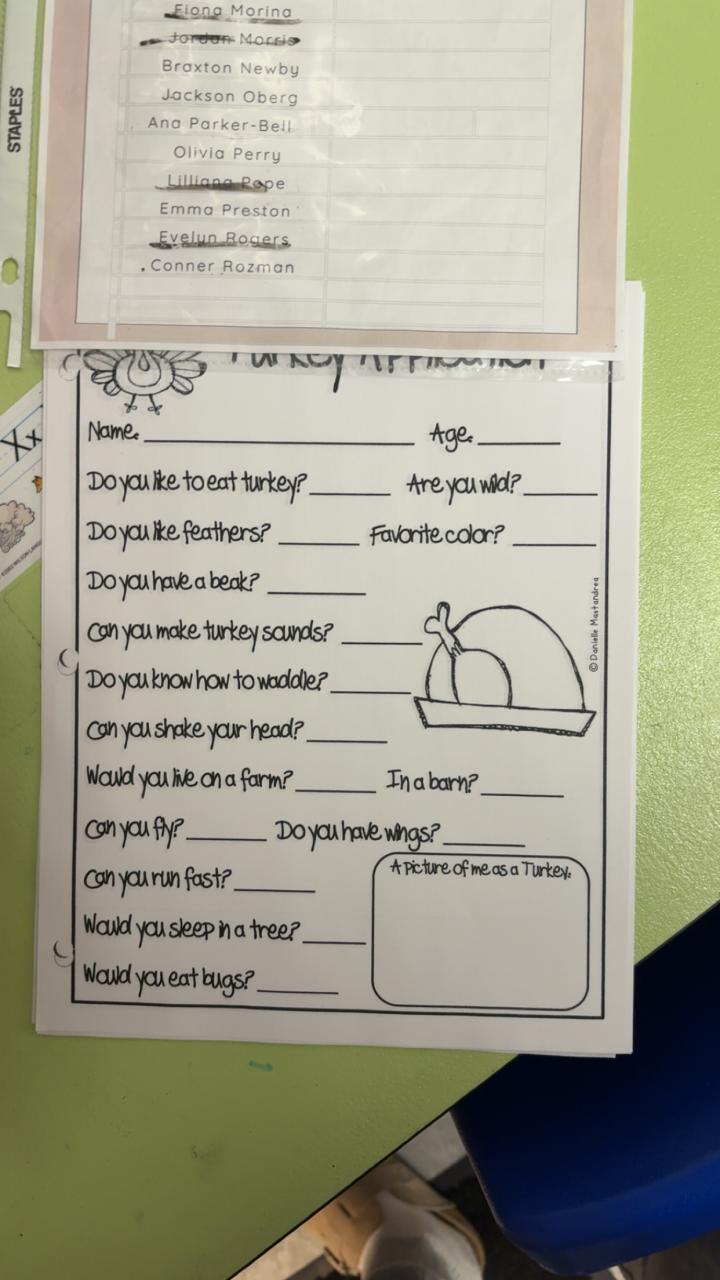 STAPLES
Fiona Morina
Jordan Morris
Braxton Newby
Jackson Oberg
Ana Parker-Bell
Olivia Perry
Lilliana Pope
Emma Preston
Evelyn Rogers
Conner Rozman
Turkey Application
Xx
Name: Age:
Do you like to eat turkey? Are you wild?
Do you like feathers? Favorite color?
Do you have a beak?
Can you make turkey sounds?
© Danielle Mastandrea
Do you know how to waddle?
Can you shake your head?
Would you live on a farm? In a barn?
Can you fly? Do you have wings?
Can you run fast?
A Picture of me as a Turkey:
Would you sleep in a tree?
Would you eat bugs?